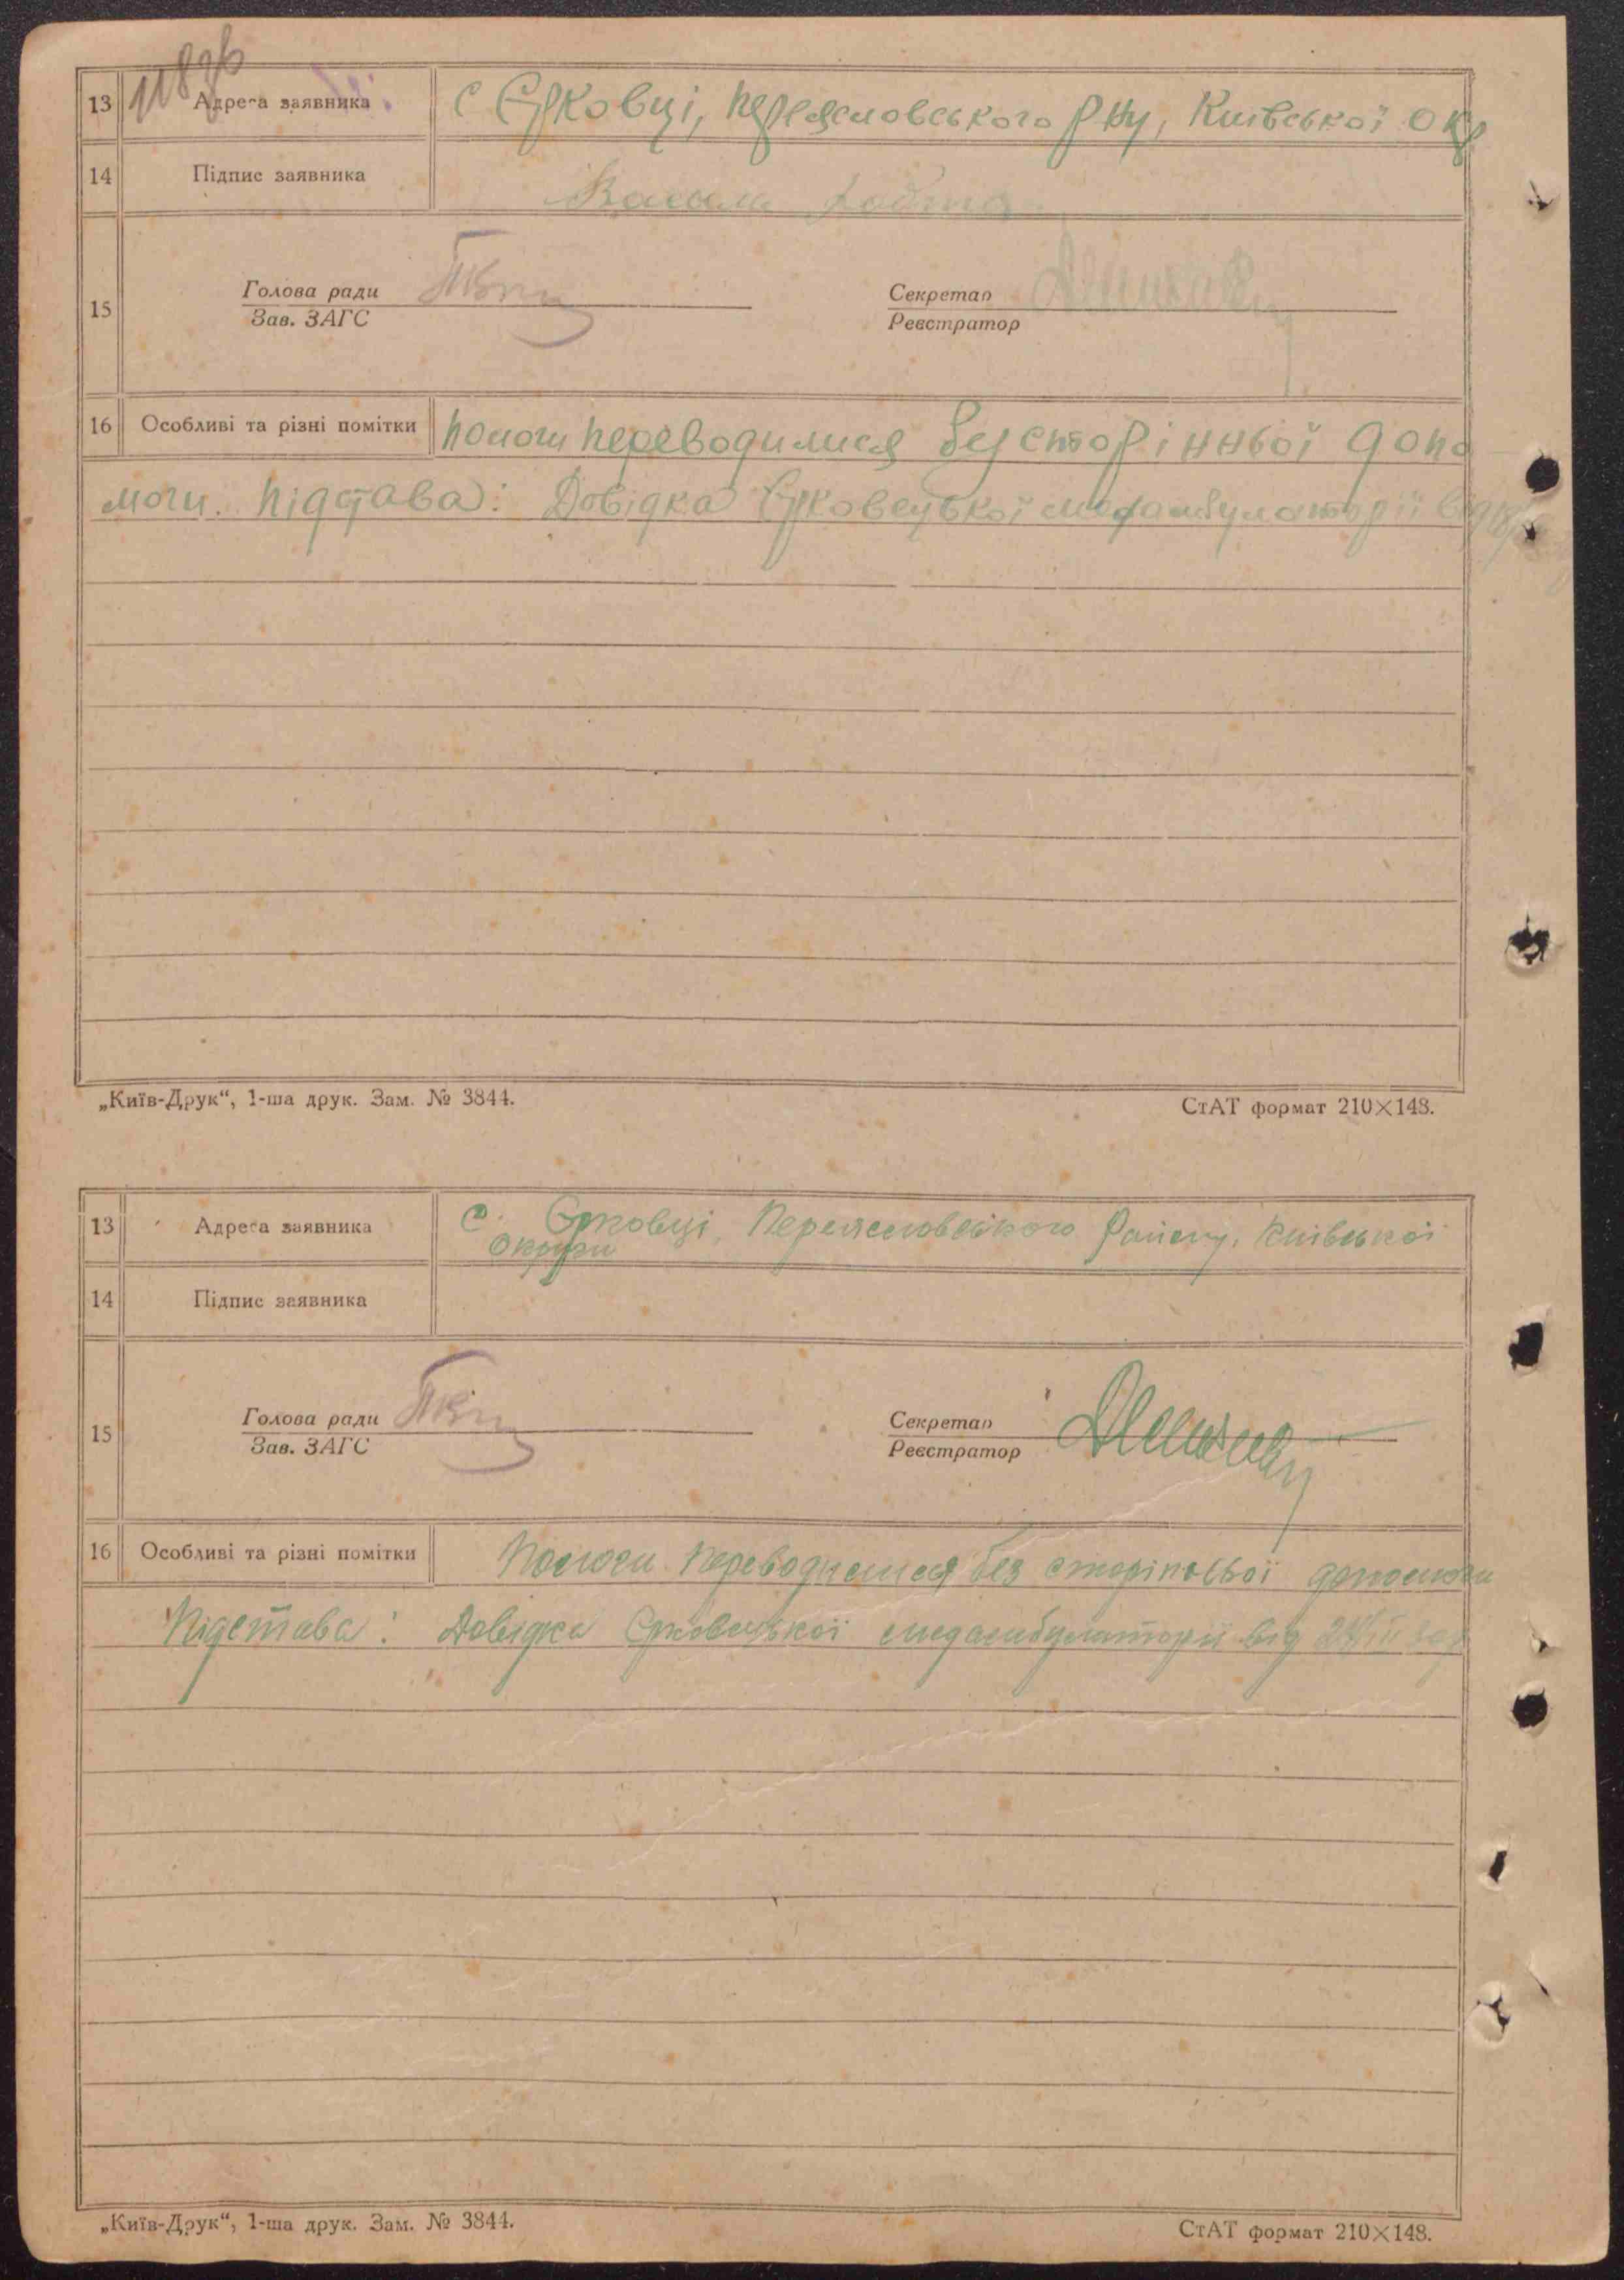 118зв
13 Адреса заявника с Єрковці, Переясловського Р-ну, Київської окр
14 Підпис заявника
15 Голова ради Секретар
Зав. ЗАГС Реєстратор
16 Особливі та різні помітки пологи переводилися без сторінньої допо
моги. підстава: Довідка Єрковецької медамбулаторії від
„Київ-Друк“, 1-ша друк. Зам. № 3844. СтАТ формат 210×148.
13 Адреса заявника с. Єрковці, Переясловського Району, Київської
Округи
14 Підпис заявника
15 Голова ради Секретар
Зав. ЗАГС Реєстратор
16 Особливі та різні помітки Пологи переводилися без сторінньої допомоги
Підстава: Довідка Єрковецької медамбулаторії від
„Київ-Друк“, 1-ша друк. Зам. № 3844. СтАТ формат 210×148.